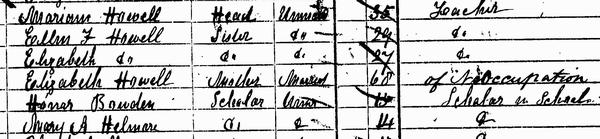 Mariam Howell Head Unmarried 35 Teacher
Ellen F Howell Sister Do 29 Do
Elizabeth Do Do Do 27 Do
Elizabeth Howell Mother Married 68 of No occupation
Honor Bowden Scholar Unmar Scholar in School
Mary A Helmore Do Do 14 Do